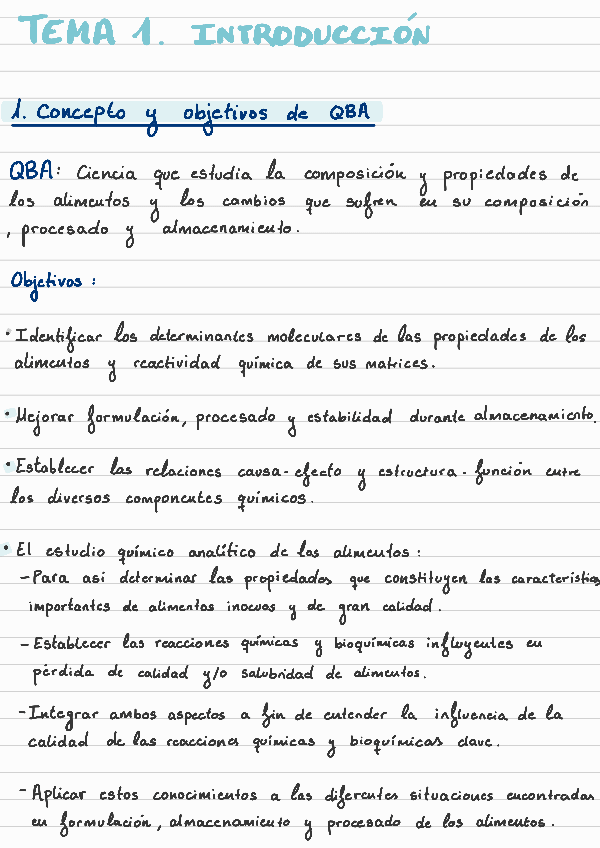 TEMA 1. INTRODUCCIÓN
1. Concepto y objetivos de QBA
QBA: Ciencia que estudia la composición y propiedades de
los alimentos y los cambios que sufren en su composición
, procesado y almacenamiento.
Objetivos:
• Identificar los determinantes moleculares de las propiedades de los
alimentos y reactividad química de sus matrices.
• Mejorar formulación, procesado y estabilidad durante almacenamiento.
• Establecer las relaciones causa-efecto y estructura-función entre
los diversos componentes químicos.
• El estudio químico analítico de los alimentos:
- Para así determinar las propiedades que constituyen las característias
importantes de alimentos inocuos y de gran calidad.
- Establecer las reacciones químicas y bioquímicas influyentes en
pérdida de calidad y/o salubridad de alimentos.
- Integrar ambos aspectos a fin de entender la influencia de la
calidad de las reacciones químicas y bioquímicas clave.
- Aplicar estos conocimientos a las diferentes situaciones encontradas
en formulación, almacenamiento y procesado de los alimentos.